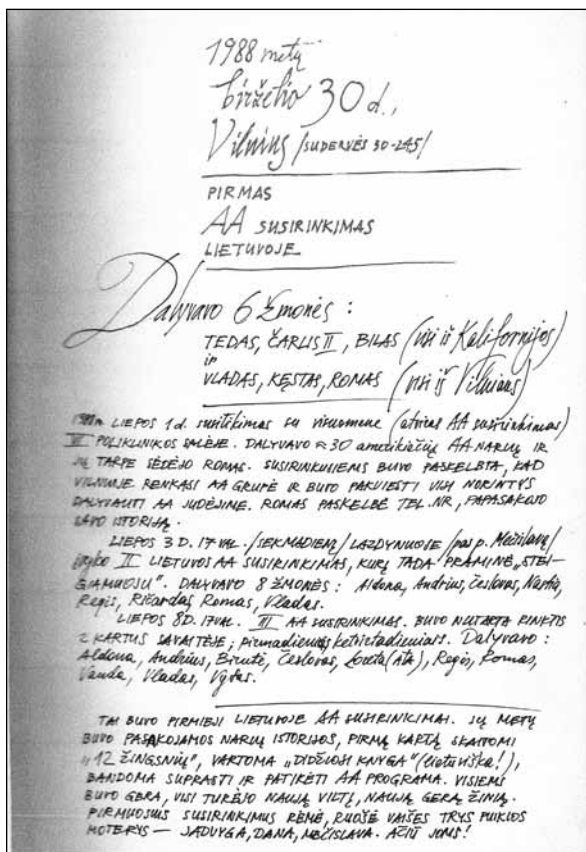 1988 metų
birželio 30 d.,
Vilnius /SUDERVĖS 30-245/
PIRMAS
AA SUSIRINKIMAS
LIETUVOJE
Dalyvavo 6 žmonės :
TEDAS, ČARLIS II, BILAS (visi iš Kalifornijos)
ir
VLADAS, KĘSTAS, ROMAS (visi iš Vilniaus)
1988m. LIEPOS 1 d. susitikimas su visuomene (atviras AA susirinkimas)
VI POLIKLINIKOS SALĖJE. DALYVAVO ≈ 30 amerikiečių AA NARIŲ IR
JŲ TARPE SĖDĖJO ROMAS. SUSIRINKUSIEMS BUVO PASKELBTA, KAD
VILNIUJE RENKASI AA GRUPĖ IR BUVO PAKVIESTI VISI NORINTYS
DALYVAUTI AA JUDĖJIME. ROMAS PASKELBĖ TEL. NR, PAPASAKOJO
SAVO ISTORIJĄ.
LIEPOS 3 D. 17 VAL. /SEKMADIENĮ/ LAZDYNUOSE /pas p. Mečislavą/
įvyko II LIETUVOS AA SUSIRINKIMAS, KURĮ TADA PRAMINĖ „STEI-
GIAMUOJU". DALYVAVO 8 ŽMONĖS : Aldona, Andrius, Česlovas, Nastia,
Regis, Ričardas, Romas, Vladas.
LIEPOS 8 D. 17 VAL. III AA SUSIRINKIMAS. BUVO NUTARTA RINKTIS
2 KARTUS SAVAITĖJE ; pirmadieniais, ketvirtadieniais. Dalyvavo :
Aldona, Andrius, Birutė, Česlovas, Loreta (Ata), Regis, Romas,
Vanda, Vladas, Vytas.
TAI BUVO PIRMIEJI LIETUVOJE AA SUSIRINKIMAI. JŲ METU
BUVO PASAKOJAMOS NARIŲ ISTORIJOS, PIRMĄ KARTĄ SKAITOMI
„12 ŽINGSNIŲ", VARTOMA „DIDŽIOJI KNYGA" (lietuviška!),
BANDOMA SUPRASTI IR PATIKĖTI AA PROGRAMA. VISIEMS
BUVO GERA, VISI TURĖJO NAUJĄ VILTĮ, NAUJĄ GERĄ ŽINIĄ.
PIRMUOSIUS SUSIRINKIMUS RĖMĖ, RUOŠĖ VAIŠES TRYS PUIKIOS
MOTERYS — JADVYGA, DANA, MEČISLAVA. AČIŪ JOMS!